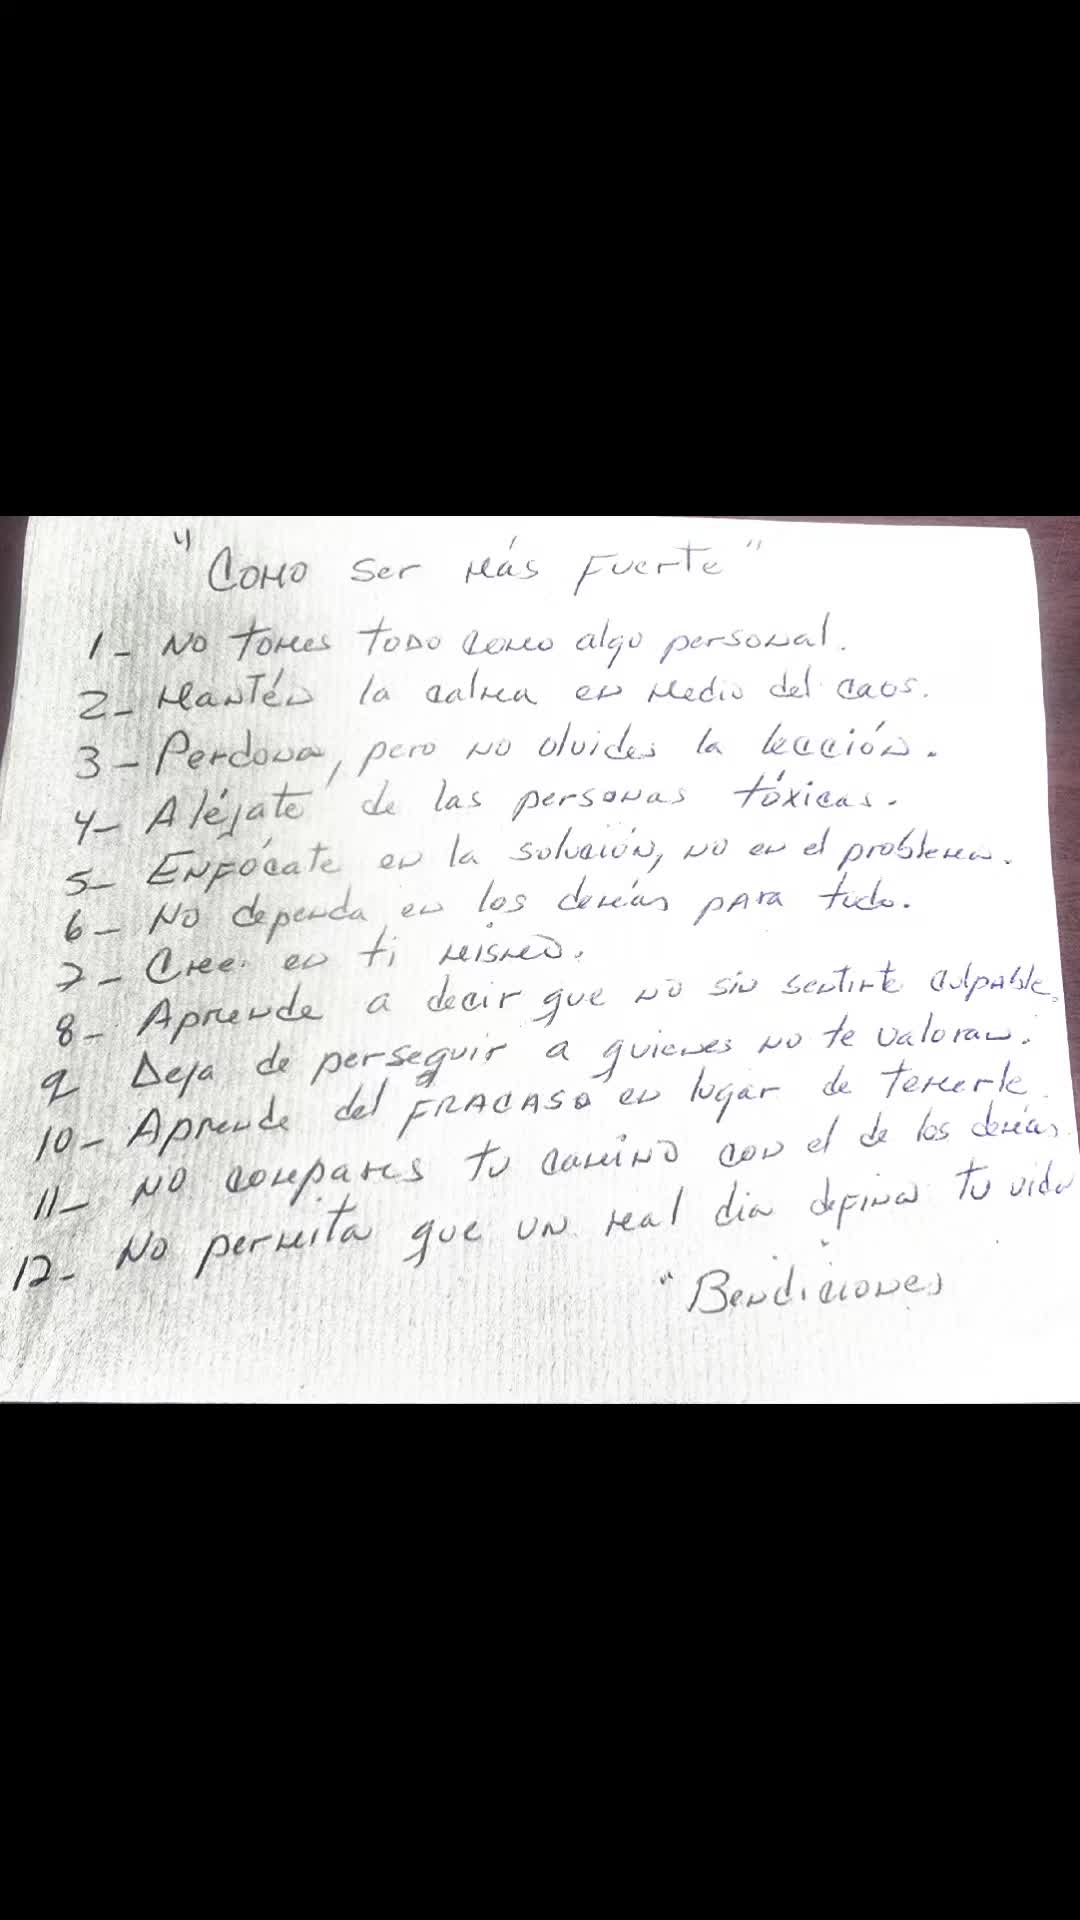 "Como ser más fuerte"
1- No tomes todo como algo personal.
2- Mantén la calma en medio del caos.
3- Perdona, pero no olvides la lección.
4- Aléjate de las personas tóxicas.
5- Enfócate en la solución, no en el problema.
6- No dependa en los demás para todo.
7- Cree en ti mismo.
8- Aprende a decir que no sin sentirte culpable.
9 Deja de perseguir a quienes no te valoran.
10- Aprende del FRACASO en lugar de temerle.
11- No compares tu camino con el de los demás.
12- No permita que un mal dia defina tu vida
"Bendiciones